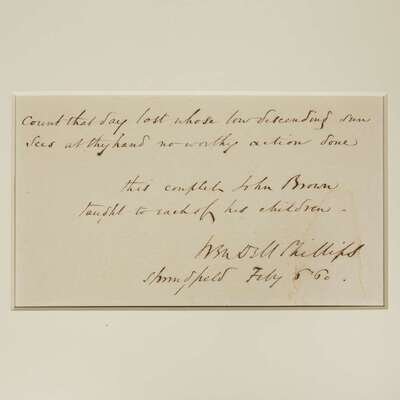 Count that day lost whose low descending sun
Sees at thy hand no worthy action done
this couplet John Brown
taught to each of his children.
Wendell Phillips
Springfield Feby 6 60.